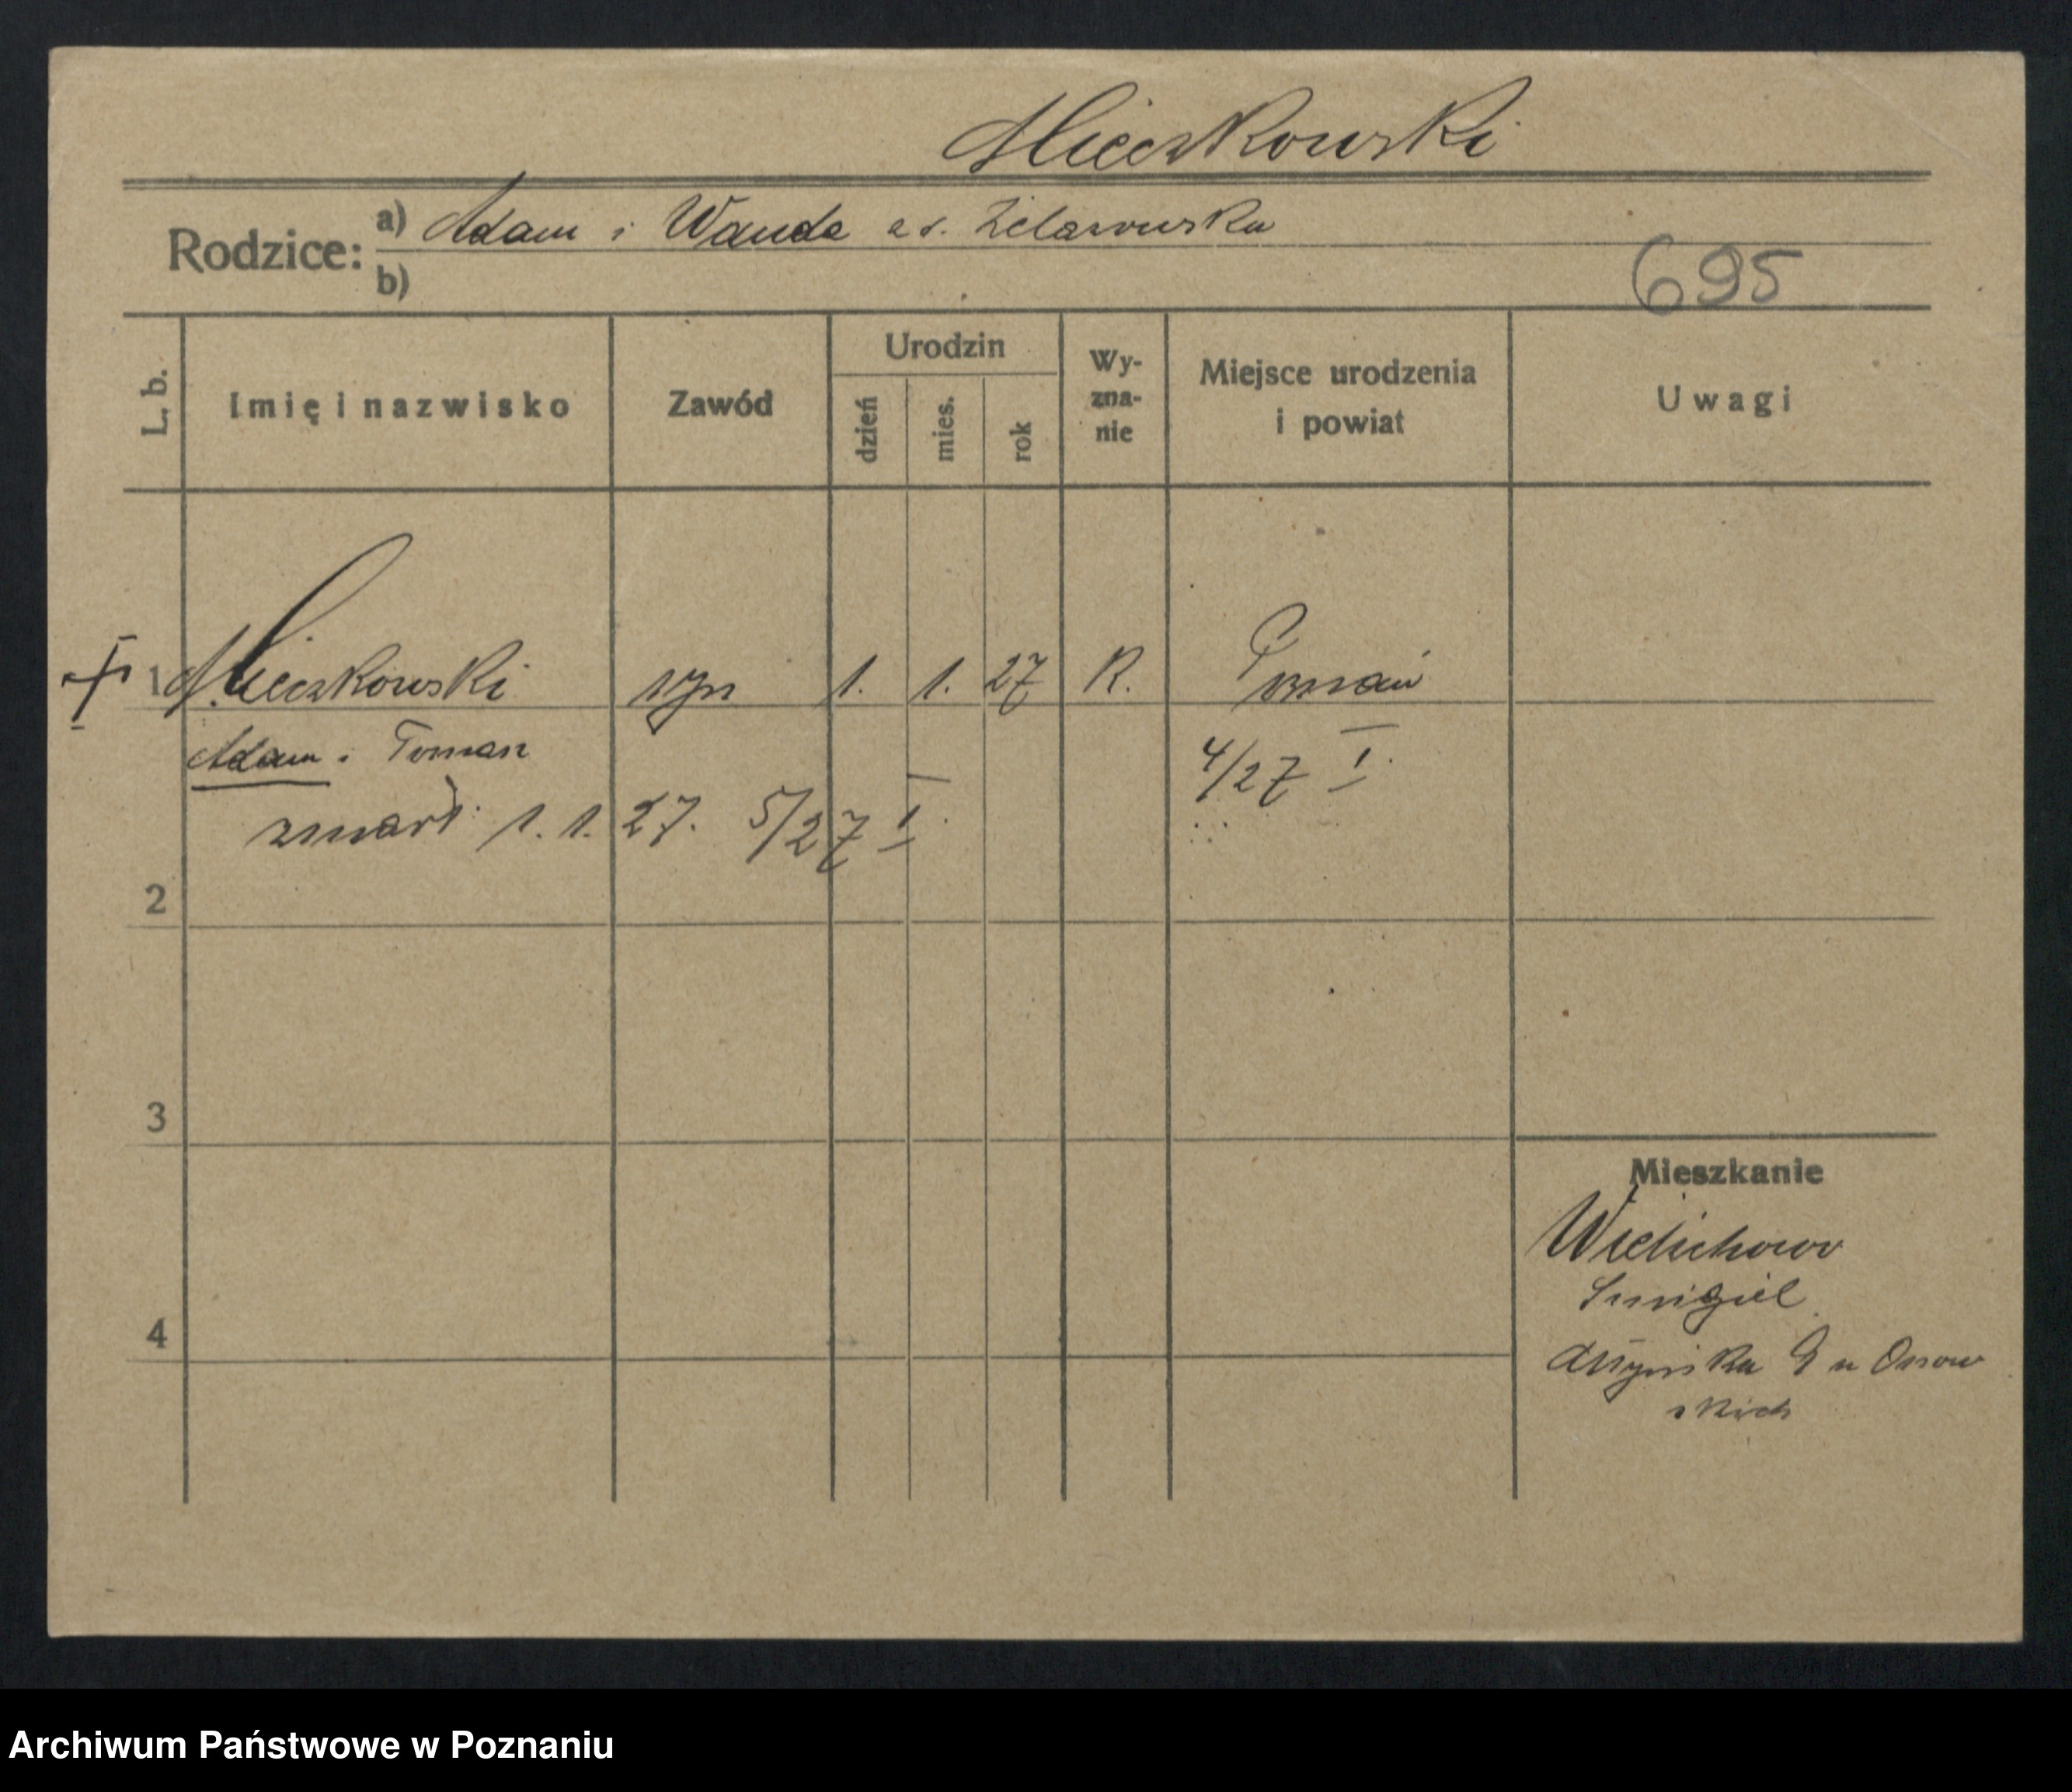 Mieczkowski
Rodzice: a) Adam i Wanda z d. Żelazowska
b)
695
L. b.
Imię i nazwisko
Zawód
Urodzin
dzień
mies.
rok
Wy-
zna-
nie
Miejsce urodzenia
i powiat
Uwagi
1 Mieczkowski syn 1. 1. 27 R. Poznań
Adam i Tomasz 4/27 I.
zmarł 1.1.27. 5/27 I.
2
3
4
Mieszkanie
Wielichowo
Śmigiel
Młyńska 9 u Ossow
skich
Archiwum Państwowe w Poznaniu